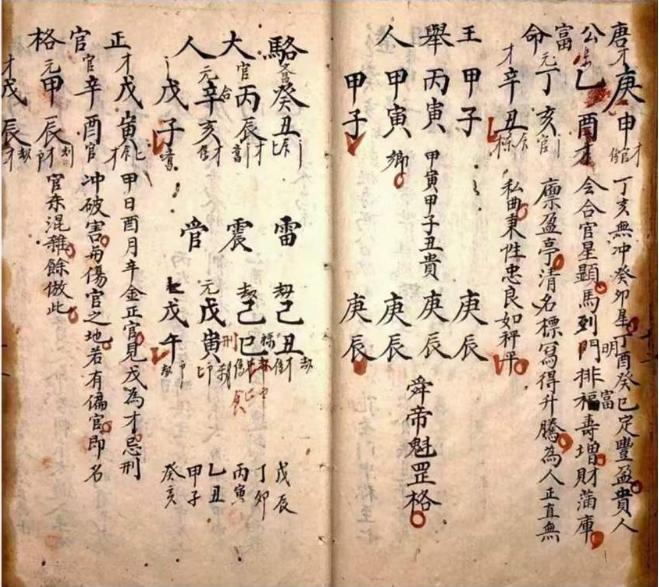 唐才庚申才 丁亥無冲癸卯星丁酉癸巳定豐盈貴人
公乙酉才 今合官星顯馬到門排福壽增財滿庫
富元丁亥官 廪盈亭清名標寫得升騰為人正直無
命才辛丑 私曲秉性忠良如秤平
王甲子 庚辰
舉丙寅 甲寅甲子丑貴 庚辰
人甲寅 庚辰
甲子 庚辰
舜帝魁罡格
駱癸丑 雷 己丑
大官丙辰 震 己巳
人元辛亥 管 元戊寅
戊子 戊午
戊辰
丁卯
丙寅
乙丑
甲子
癸亥
正才戊寅 甲日酉月辛金正官見戊為才忌刑
官官辛酉官 冲破害与傷官之地若有偏官即名
格元甲辰 官杀混雜餘倣此
才戊辰才